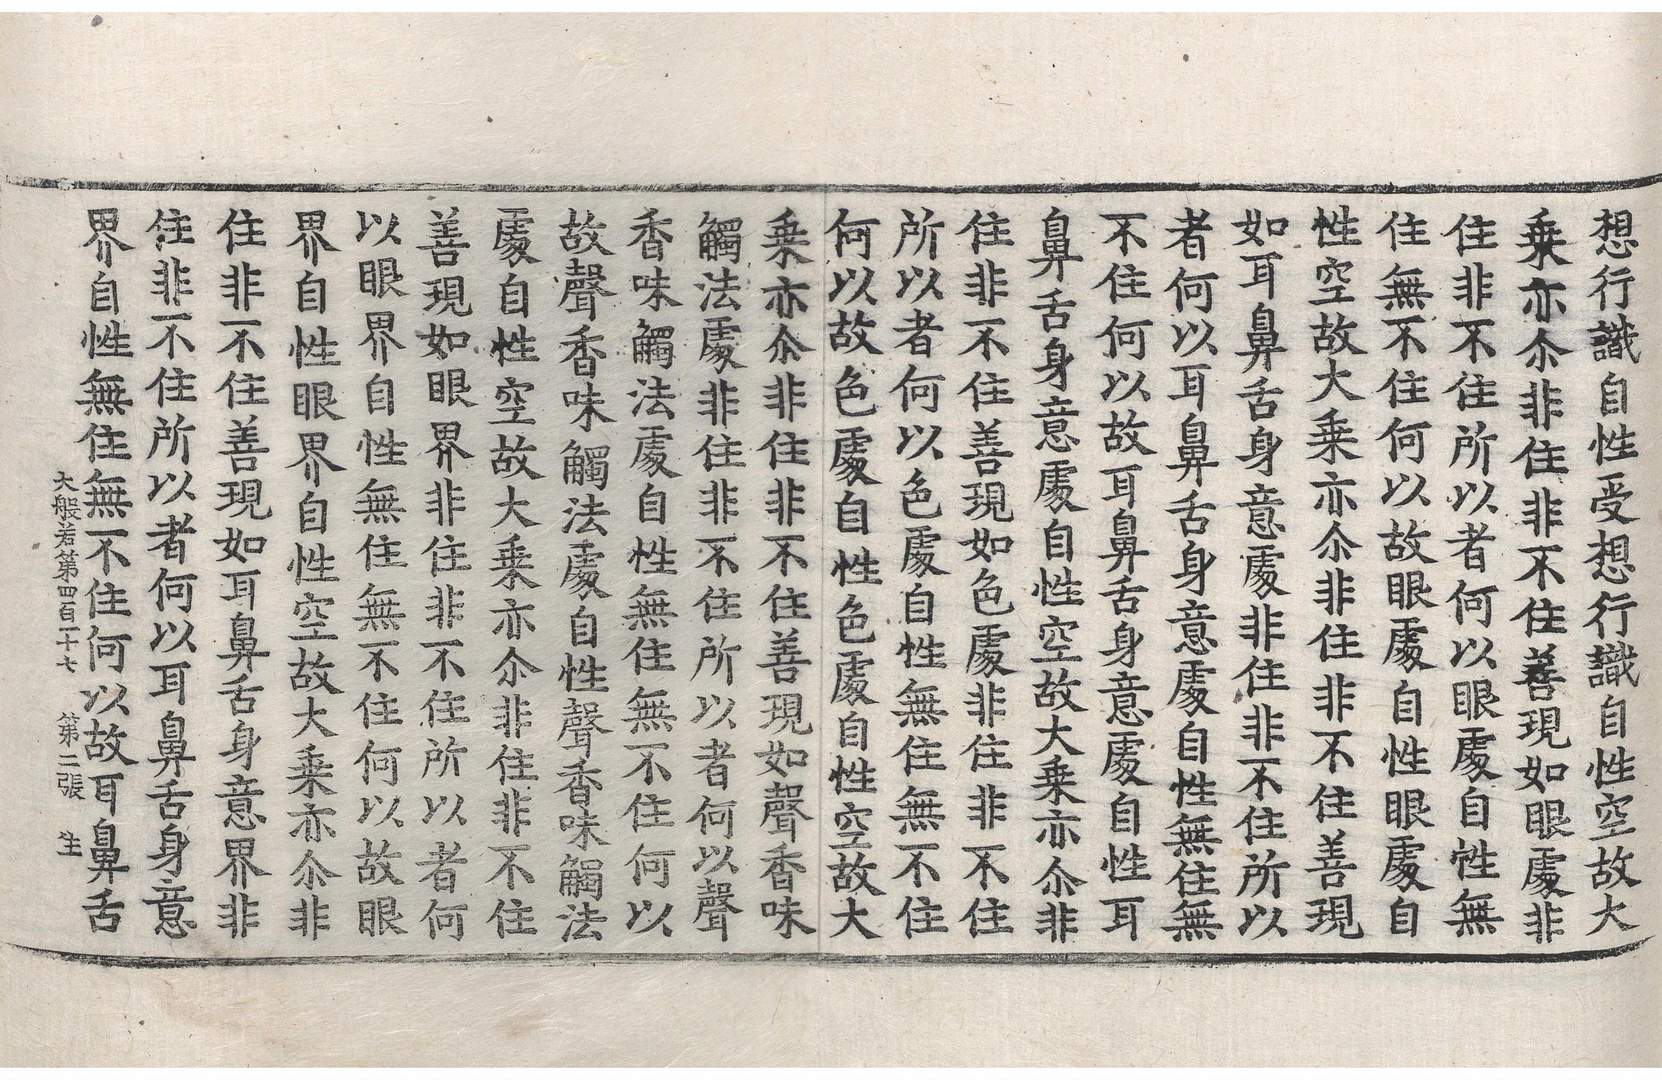 想行識自性受想行識自性空故大
乗亦尒非住非不住善現如眼處非
住非不住所以者何以眼處自性無
住無不住何以故眼處自性眼處自
性空故大乗亦尒非住非不住善現
如耳鼻舌身意處非住非不住所以
者何以耳鼻舌身意處自性無住無
不住何以故耳鼻舌身意處自性耳
鼻舌身意處自性空故大乗亦尒非
住非不住善現如色處非住非不住
所以者何以色處自性無住無不住
何以故色處自性色處自性空故大
乗亦尒非住非不住善現如聲香味
觸法處非住非不住所以者何以聲
香味觸法處自性無住無不住何以
故聲香味觸法處自性聲香味觸法
處自性空故大乗亦尒非住非不住
善現如眼界非住非不住所以者何
以眼界自性無住無不住何以故眼
界自性眼界自性空故大乗亦尒非
住非不住善現如耳鼻舌身意界非
住非不住所以者何以耳鼻舌身意
界自性無住無不住何以故耳鼻舌
大般若第四百一十七 第二張 生